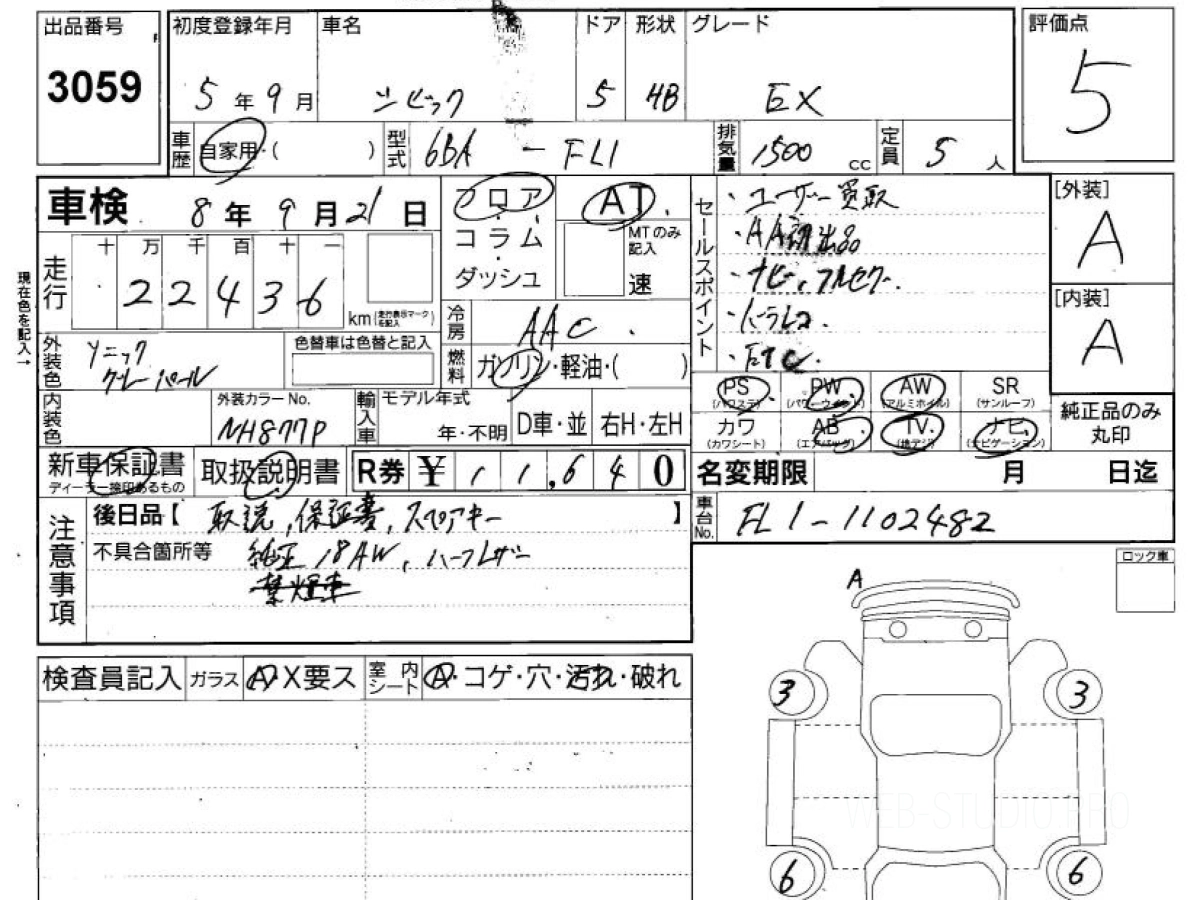 出品番号
3059
初度登録年月
5年9月
車名
シビック
ドア
5
形状
HB
グレード
EX
評価点
5
車歴
自家用・( )
型式
6BA - FL1
排気量
1500 cc
定員
5人
車検 8年9月21日
フロア
コラム
ダッシュ
AT
MTのみ記入
速
セールスポイント
・ユーザー買取
・AA初出品
・ナビ、フルセグ
・ドラレコ
・ETC
[外装]
A
[内装]
A
現在色を記入→
走行
十万千百十一
22436
km (走行表示マークを記入)
冷房
AAC
燃料
ガソリン・軽油・( )
外装色
ソニック
グレーパール
色替車は色替と記入
内装色
外装カラーNo.
NH877P
輸入車
モデル年式
年・不明
D車・並
右H・左H
PS (パワステ)
PW (パワーウィンド)
AW (アルミホイル)
SR (サンルーフ)
カワ (カワシート)
AB (エアバッグ)
TV (地デジ)
ナビ (ナビゲーション)
純正品のみ
丸印
新車保証書
ディーラー捺印あるもの
取扱説明書
R券 ¥11,640
名変期限 月 日迄
車台No.
FL1-1102482
注意事項
後日品【 取説、保証書、スペアキー 】
不具合箇所等 純正18AW、ハーフレザー
禁煙車
ロック車
検査員記入
ガラス
A・X要ス
室内シート
A・コゲ・穴・汚れ・破れ
A
3
3
6
6
WEB-STUDIO.PRO